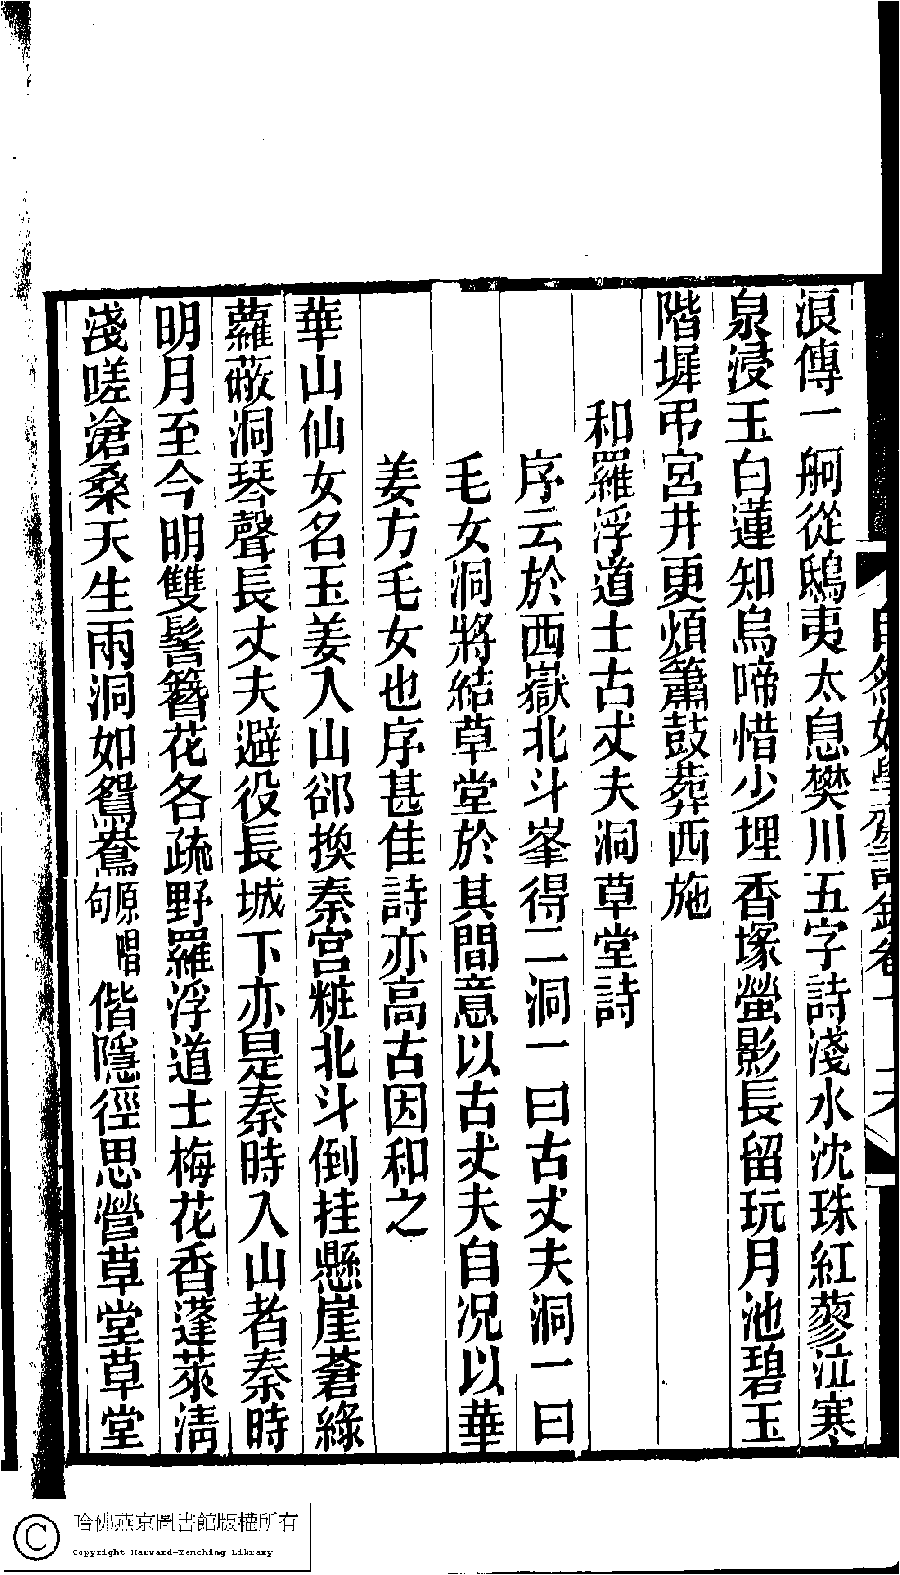 浪傳一舸從鴟夷太息樊川五字詩淺水沈珠紅蓼泣寒
泉浸玉白蓮知烏啼惜少埋香塚螢影長留玩月池碧玉
階墀弔宮井更煩簫鼓葬西施
和羅浮道士古丈夫洞草堂詩
序云於西嶽北斗峯得二洞一曰古丈夫洞一曰
毛女洞將結草堂於其間意以古丈夫自況以華
姜方毛女也序甚佳詩亦高古因和之
華山仙女名玉姜入山郤換秦宮粧北斗倒挂懸崖蒼綠
蘿蔽洞琴聲長丈夫避役長城下亦是秦時入山者秦時
明月至今明雙髻簪花各疏野羅浮道士梅花香蓬萊清
淺嗟滄桑天生兩洞如鴛鴦原唱句偕隱徑思營草堂草堂
哈佛燕京圖書館版權所有
Copyright Harvard-Yenching Library